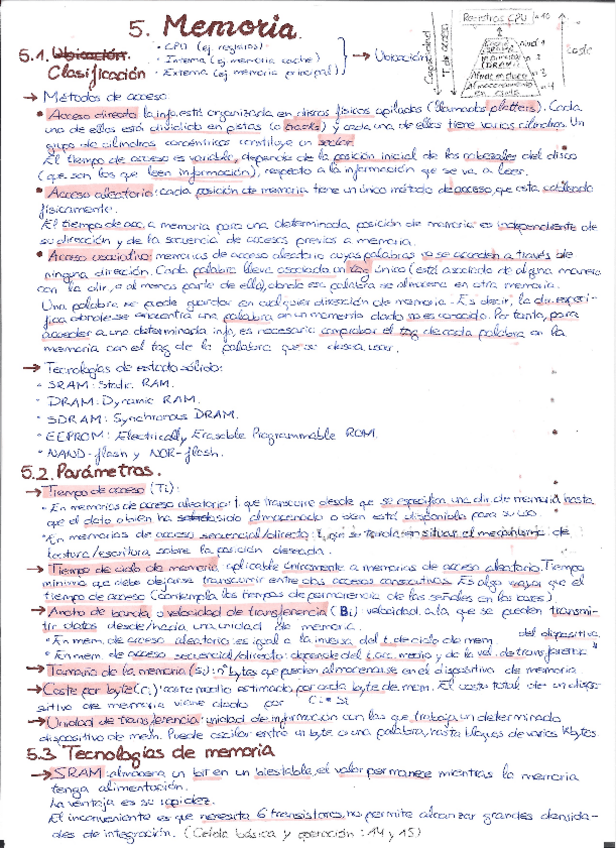 5. Memoria.
5.1. Ubicación.
Clasificación
· CPU (ej registros)
· Interna (ej memoria cache)
· Externa (ej memoria principal)
→ Ubicación
Capacidad
T de acceso
Registros CPU
Nivel 1
Coste
→ Métodos de acceso:
• Acceso directo: la info está organizada en discos físicos apilados (llamados platters). Cada
uno de ellos está dividido en pistas (o tracks) y cada una de ellos tiene varios cilindros. Un
grupo de cilindros concéntricos constituye un sector.
El tiempo de acceso es variable, depende de la posición inicial de los cabezales del disco
(que son los que leen información), respecto a la información que se va a leer.
• Acceso aleatorio: cada posición de memoria tiene un único método de acceso, que está cableado
físicamente.
El tiempo de acc. a memoria para una determinada posición de memoria es independiente de
su dirección y de la secuencia de accesos previos a memoria.
• Acceso asociativo: memorias de acceso aleatorio cuyas palabras no se acceden a través de
ninguna dirección. Cada palabra lleva asociada un tag único (está asociado de alguna manera
con la dir, o al menos parte de ella), donde esa palabra se almacena en otra memoria.
Una palabra se puede guardar en cualquier dirección de memoria. Es decir, la dir. especí-
fica donde se encuentra una palabra en un momento dado no es conocido. Por tanto, para
acceder a una determinada info, es necesario comprobar el tag de cada palabra en la
memoria con el tag de la palabra que se desea usar.
→ Tecnologías de estado sólido:
· SRAM: Static RAM.
· DRAM: Dynamic RAM.
· SDRAM: Synchronous DRAM.
· EEPROM: Electrically Erasable Programmable ROM.
· NAND-flash y NOR-flash.
5.2. Parámetros.
→ Tiempo de acceso (Ti):
· En memorias de acceso aleatorio: t. que transcurre desde que se especifica una dir. de memoria hasta
que el dato o bien ha sido almacenado o bien está disponible para su uso.
· En memorias de acceso secuencial/directo: t. que se tarda en situar el mecanismo de
lectura/escritura sobre la posición deseada.
→ Tiempo de ciclo de memoria: aplicable únicamente a memorias de acceso aleatorio. Tiempo
mínimo que debe dejarse transcurrir entre dos accesos consecutivos. Es algo mayor que el
tiempo de acceso (contempla los tiempos de permanencia de las señales en los buses)
→ Ancho de banda o velocidad de transferencia (Bi): velocidad a la que se pueden transmi-
tir datos desde/hacia una unidad de memoria.
· En mem. de acceso aleatorio: es igual a la inversa del t. de ciclo de mem.
· En mem. de acceso secuencial/directo: depende del t. acc. medio y de la vel. de transferencia
del dispositivo.
→ Tamaño de la memoria (Si): nº bytes que pueden almacenarse en el dispositivo de memoria
→ Coste por byte (Ci): coste medio estimado por cada byte de mem. El coste total de un dispo-
sitivo de memoria viene dado por Ci * Si
→ Unidad de transferencia: unidad de información con las que trabaja un determinado
dispositivo de mem. Puede oscilar entre un byte o una palabra, hasta bloques de varios Kbytes.
5.3 Tecnologías de memoria
→ SRAM: almacena un bit en un biestable, el valor permanece mientras la memoria
tenga alimentación.
La ventaja es su rapidez.
El inconveniente es que necesita 6 transistores, no permite alcanzar grandes densida-
des de integración. (Celda básica y operación: 14 y 15)